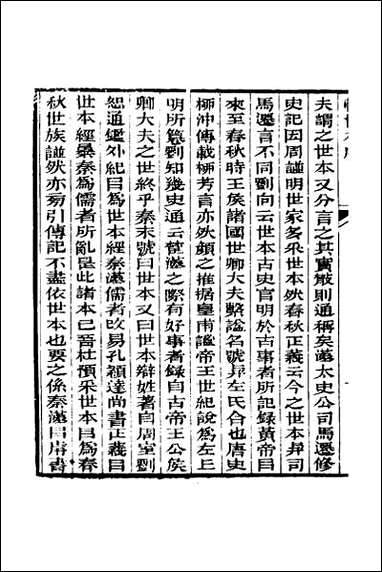 夫謂之世本又分言之其實散則通稱矣漢太史公司馬遷修
史記因周譜明世家多采世本然春秋正義云今之世本與司
馬遷言不同劉向云世本古史官明於古事者所記錄黃帝㠯
來至春秋時王矦諸國世卿大夫繫諡名號與左氏合也唐史
柳沖傳載柳芳言亦然顏之推據皇甫謐帝王世紀說為左丘
明所篹劉知幾史通云楚漢之際有好事者錄自古帝王公矦
卿大夫之世終乎秦末號曰世本又曰世本辯姓著自周室劉
恕通鑑外紀㠯為世本經秦漢儒者改易孔穎達尚書正義㠯
世本經㬥秦為儒者所亂是此諸本已晉杜預采世本㠯為春
秋世族譜然亦㫄引傳記不盡依世本也要之係秦漢㠯前書